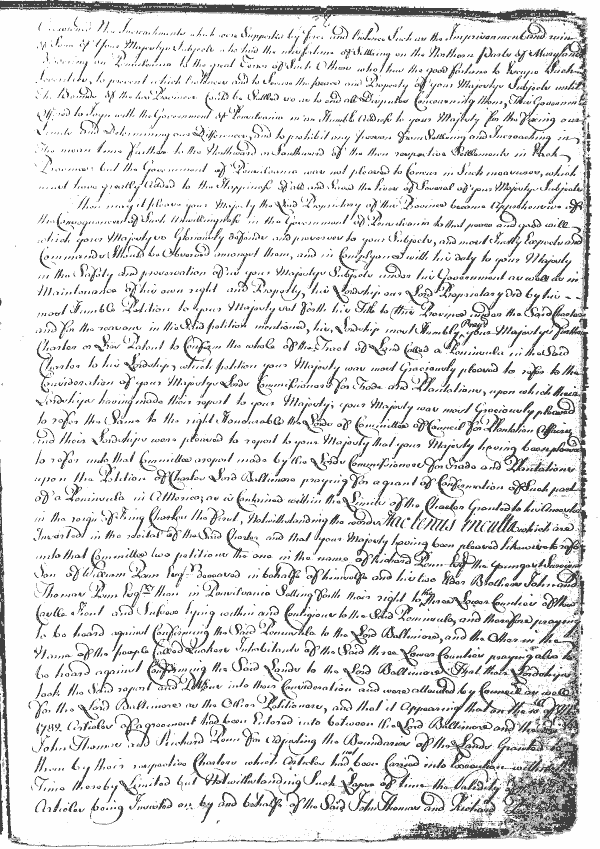 the Incroachments which were Supported by force and Violence Such as the Imprisonment and ruin
of Some of Your Majestys Subjects who had the misfortune of Settling on the Northern parts of Maryland
Bordering on Pensilvania to the great Terror of Such Others who had the good fortune to Escape Such
Severities, to prevent which Evils and to Secure the peace and Property of your Majestys Subjects until
the Bounds of the two Provinces Could be Settled so as to end all Disputes Concerning them, This Government
Offered to Joyn with the Government of Pensilvania in an Humble Address to your Majesty for the fixing our
Limits and Determining our Differences and to prohibit any Persons from Settling and Incroaching in
the mean time further to the Northward or Southward of the then respective Settlements in Each
Province but the Government of Pensilvania was not pleased to Concur in Such measures, which
must have greatly added to the Happiness of all and Saved the lives of Several of your Majestys Subjects
That may it please your Majesty the Lord Proprietary of this Province became Apprehensive of
the Consequences of Such Unwillingness in the Government of Pensilvania to that peace and good will
which your Majesty so Gloriously defends and preserves to your Subjects, and most Justly Expects and
Commands Should be Observed amongst them, and in Complyance with his duty to your Majesty
in the Safety and preservation of your Majestys Subjects under his Government as well as in
Maintenance of his own right and Property, his Lordship our Lord Proprietary did by his
most Humble Petition to your Majesty set forth his Title to this Province under the Said Charter
and for the reasons in the Said petition mentioned, his Lordship most Humbly Pray'd your Majestys further
Charter or New Patent to Confirm the whole of the Tract of Land Called a Peninsula in the Said
Charter to his Lordship, which petition your Majesty was most Graciously pleased to refer to the
Consideration of your Majestys Lords Commissioners for Trade and Plantations, upon which their
Lordships having made their report to your Majesty, your Majesty was most Graciously pleased
to refer the Same to the right Honourable the Lords of Committee of Council for Plantation Affairs,
and their Lordships were pleased to report to your Majesty that your Majesty having been pleased
to refer unto that Committee a report made by the Lords Commissioners for Trade and Plantations
upon the Petition of Charles Lord Baltimore praying for a grant of Confirmation of Such part
of a Peninsula in America, as is Contained within the Limits of the Charter Granted to his Ancestor
in the reign of King Charles the first, Notwithstanding the words Hactenus inculta which are
Inserted in the recital of the Said Charter and that your Majesty having been pleased likewise to refer
unto that Committee two petitions the one in the name of Richard Penn Esqr. the Youngest Surviving
Son of William Penn Esqr. Deceased in behalf of himself and his two Elder Brothers John and
Thomas Penn Esqrs. then in Pensilvania Setting forth their right to the three Lower Counties of New
Castle Kent and Sussex lying within and Contigious to the Said Peninsula, and therefore praying
to be heard against Confirming the Said Peninsula to the Lord Baltimore, and the Other in the
Name of the people Called Quakers Inhabitants of the Said three Lower Counties praying also to
be heard against Confirming the Said Lands to the Lord Baltimore, That their Lordships
took the Said report and Petitions into their Consideration and were attended by Council as well
for the Lord Baltimore as the Other Petitioners, and that it appearing that on the 10th of May
1732. Articles of agreement had been Entered into between the Lord Baltimore and the said
John Thomas and Richard Penn for adjusting the Boundaries of the Lands Granted to
them by their respective Charters which Articles had not been Carried into Execution within the
Time thereby Limited but Notwithstanding Such Lapse of time the Validity of
Articles being Insisted on by and behalf of the Said John Thomas and Richard